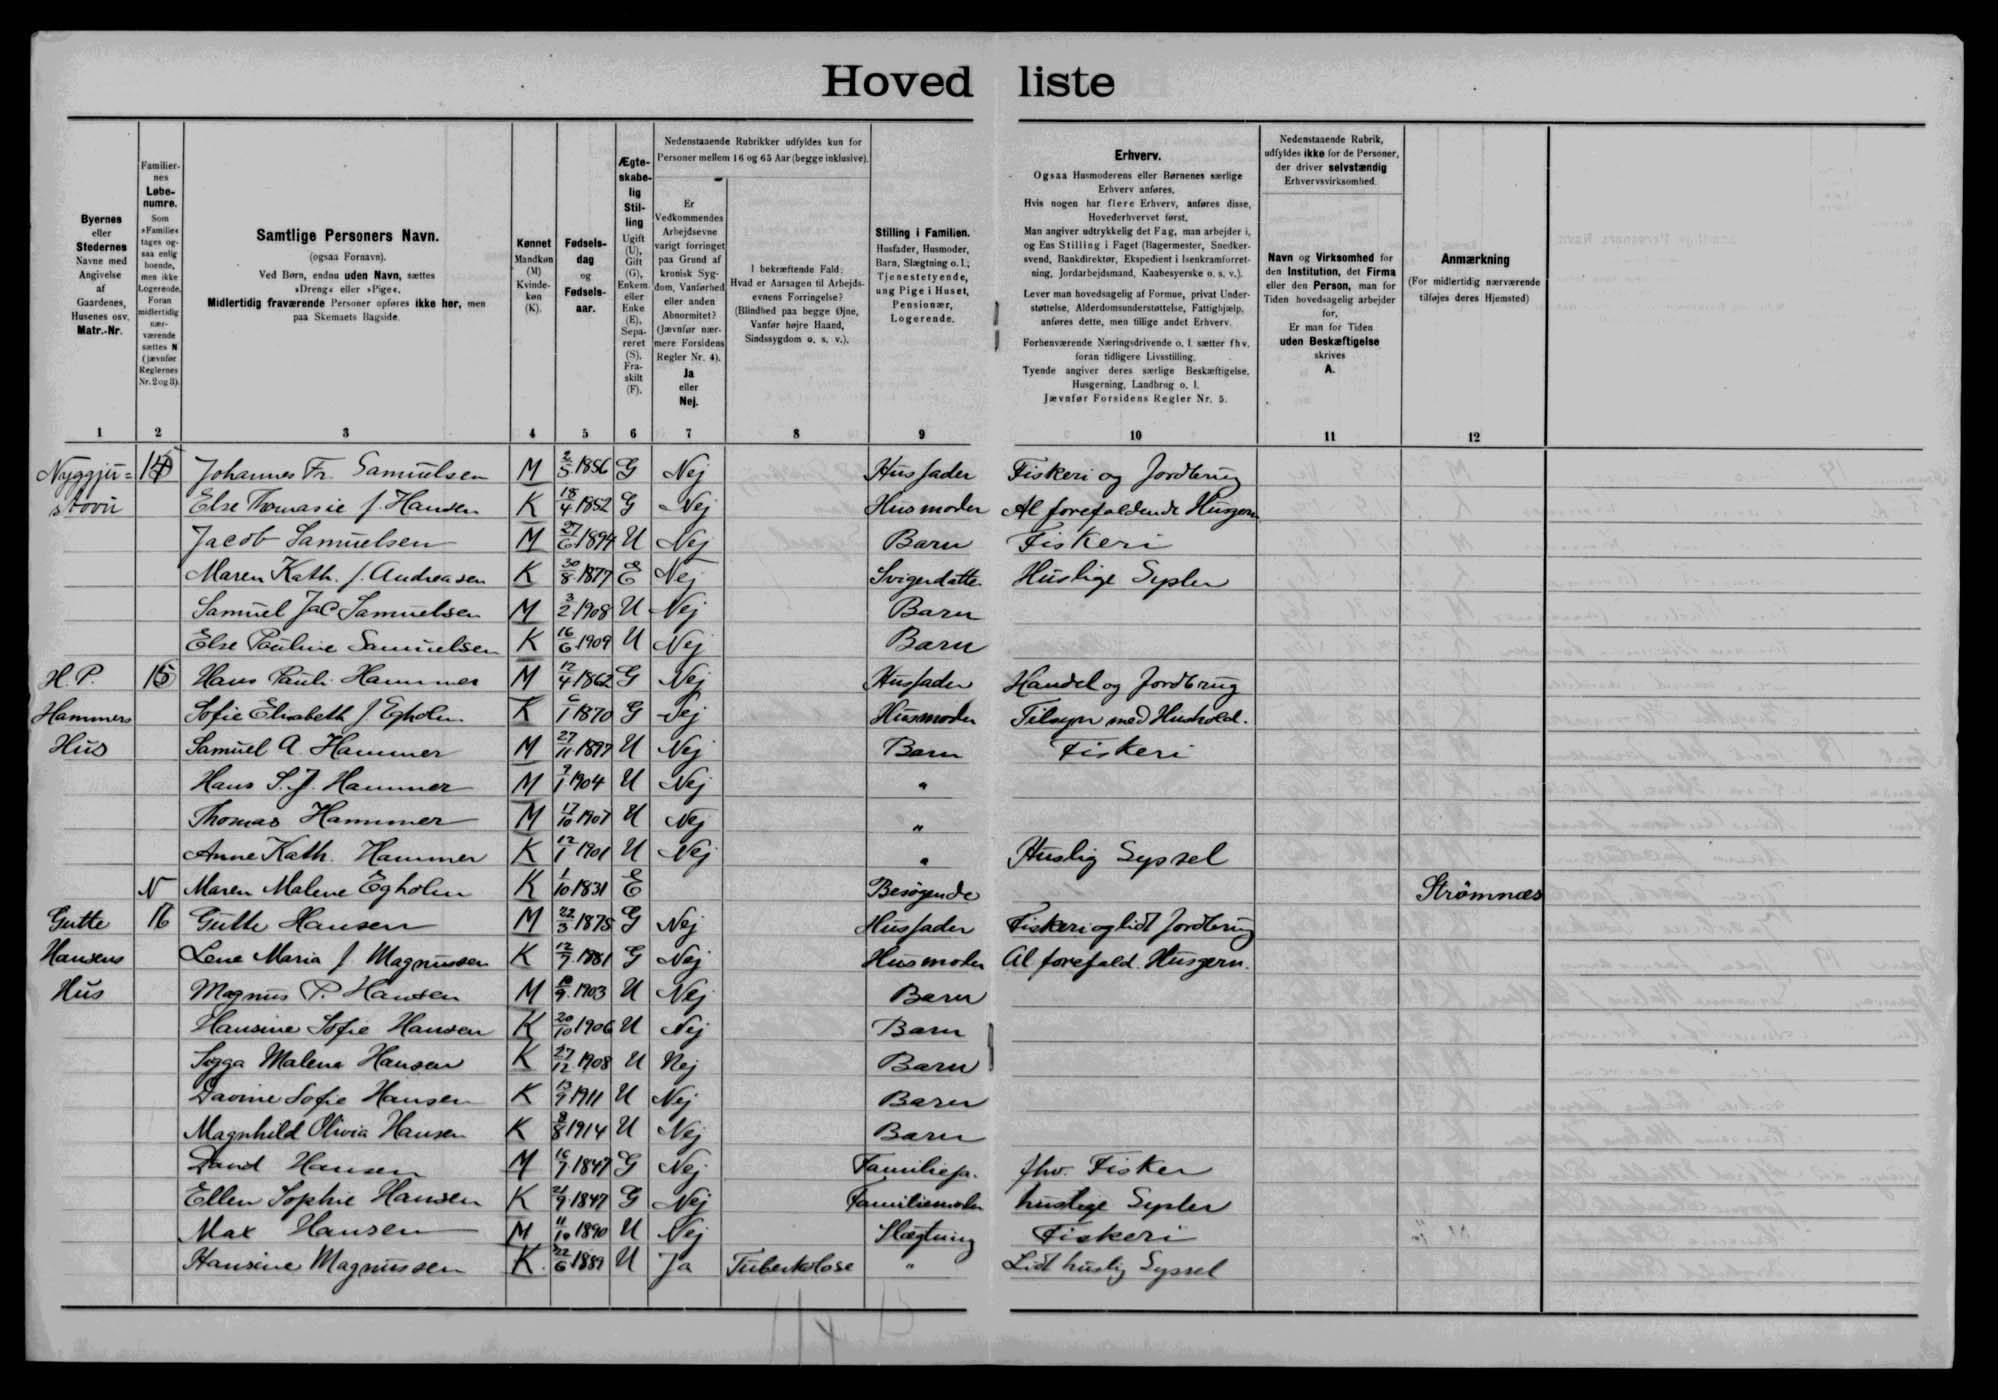 Hoved liste
Byernes
eller
Stedernes
Navne med
Angivelse
af
Gaardenes,
Husenes osv.
Matr.-Nr.
Familier-
nes
Løbe-
numre.
Som
»Familie«
tages og-
saa enlig
boende,
men ikke
Logerende.
Foran
midlertidig
nær-
værende
sættes N
(jævnfør
Reglernes
Nr. 2 og 3).
Samtlige Personers Navn.
(ogsaa Fornavn).
Ved Børn, endnu uden Navn, sættes
»Dreng« eller »Pige«.
Midlertidig fraværende Personer opføres ikke her, men
paa Skemaets Bagside.
Kønnet
Mandkøn
(M)
Kvinde-
køn
(K).
Fødsels-
dag
og
Fødsels-
aar.
Ægte-
skabe-
lig
Stil-
ling
Ugift
(U),
Gift
(G),
Enkem.
eller
Enke
(E),
Sepa-
reret
(S),
Fra-
skilt
(F).
Nedenstaaende Rubrikker udfyldes kun for
Personer mellem 16 og 65 Aar (begge inklusive).
Er
Vedkommendes
Arbejdsevne
varigt forringet
paa Grund af
kronisk Syg-
dom, Vanførhed
eller anden
Abnormitet?
(Jævnfør nær-
mere Forsidens
Regler Nr. 4).
Ja
eller
Nej.
I bekræftende Fald:
Hvad er Aarsagen til Arbejds-
evnens Forringelse?
(Blindhed paa begge Øjne,
Vanfør højre Haand,
Sindssygdom o. s. v.).
Stilling i Familien.
Husfader, Husmoder,
Barn, Slægtning o.l.;
Tjenestetyende,
ung Pige i Huset,
Pensionær,
Logerende.
Erhverv.
Ogsaa Husmoderens eller Børnenes særlige
Erhverv anføres.
Hvis nogen har flere Erhverv, anføres disse,
Hovederhvervet først.
Man angiver udtrykkelig det Fag, man arbejder i,
og Ens Stilling i Faget (Bagermester, Snedker-
svend, Bankdirektør, Ekspedient i Isenkramforret-
ning, Jordarbejdsmand, Kaabesyerske o. s. v.).
Lever man hovedsagelig af Formue, privat Under-
støttelse, Alderdomsunderstøttelse, Fattighjælp,
anføres dette, men tillige andet Erhverv.
Forhenværende Næringsdrivende o. l. sætter fhv.
foran tidligere Livsstilling.
Tyende angiver deres særlige Beskæftigelse,
Husgerning, Landbrug o. l.
Jævnfør Forsidens Regler Nr. 5.
Nedenstaaende Rubrik,
udfyldes ikke for de Personer,
der driver selvstændig
Erhvervsvirksomhed.
Navn og Virksomhed for
den Institution, det Firma
eller den Person, man for
Tiden hovedsagelig arbejder
for.
Er man for Tiden
uden Beskæftigelse
skrives
A.
Anmærkning
(For midlertidig nærværende
tilføjes deres Hjemsted)
1 2 3 4 5 6 7 8 9 10 11 12
Nyggju= Johannes Fr. Samuelsen M 2/5 1856 G Nej Husfader Fiskeri og Jordbrug
stovu Else Thomasie f. Hansen K 18/4 1852 G Nej Husmoder Al forefaldende Husgern
Jacob Samuelsen M 27/6 1894 U Nej Barn Fiskeri
Maren Kath. f. Andreasen K 30/8 1877 E Nej Svigerdatter Huslige Sysler
Samuel Jac Samuelsen M 3/2 1908 U Nej Barn
Else Pauline Samuelsen K 16/6 1909 U Nej Barn
H. P. 15 Hans Pauli Hammer M 12/4 1862 G Nej Husfader Handel og Jordbrug
Hammers Sofie Elisabeth f Egholm K 6/1 1870 G Nej Husmoder Tilsyn med Hushold.
Hus Samuel A. Hammer M 27/11 1897 U Nej Barn Fiskeri
Hans S. J. Hammer M 7/1 1904 U Nej "
Thomas Hammer M 17/10 1907 U Nej "
Anne Kath. Hammer K 12/1 1901 U Nej " Huslig Syssel
N Maren Malene Egholm K 1/10 1831 E Besøgende Strömnæs
Gutte 16 Gutte Hansen M 22/3 1875 G Nej Husfader Fiskeri og lidt Jordbrug
Hansens Lene Maria f Magnussen K 12/7 1881 G Nej Husmoder Al forefald. Husgern.
Hus Magnus P. Hansen M 9 1903 U Nej Barn
Hansine Sofie Hansen K 20/10 1906 U Nej Barn
Sigga Malene Hansen K 27/12 1908 U Nej Barn
Davine Sofie Hansen K 13/9 1911 U Nej Barn
Magnhild Olivia Hansen K 8/8 1914 U Nej Barn
David Hansen M 16/7 1847 G Nej Familiefa. fhv. Fisker
Ellen Sophie Hansen K 21/9 1847 G Nej Familiemoder huslige Sysler
Max Hansen M 11/10 1890 U Nej Slægtning Fiskeri
Hansine Magnussen K. 22/6 1889 U Ja Tuberkolose " Lidt huslig Syssel